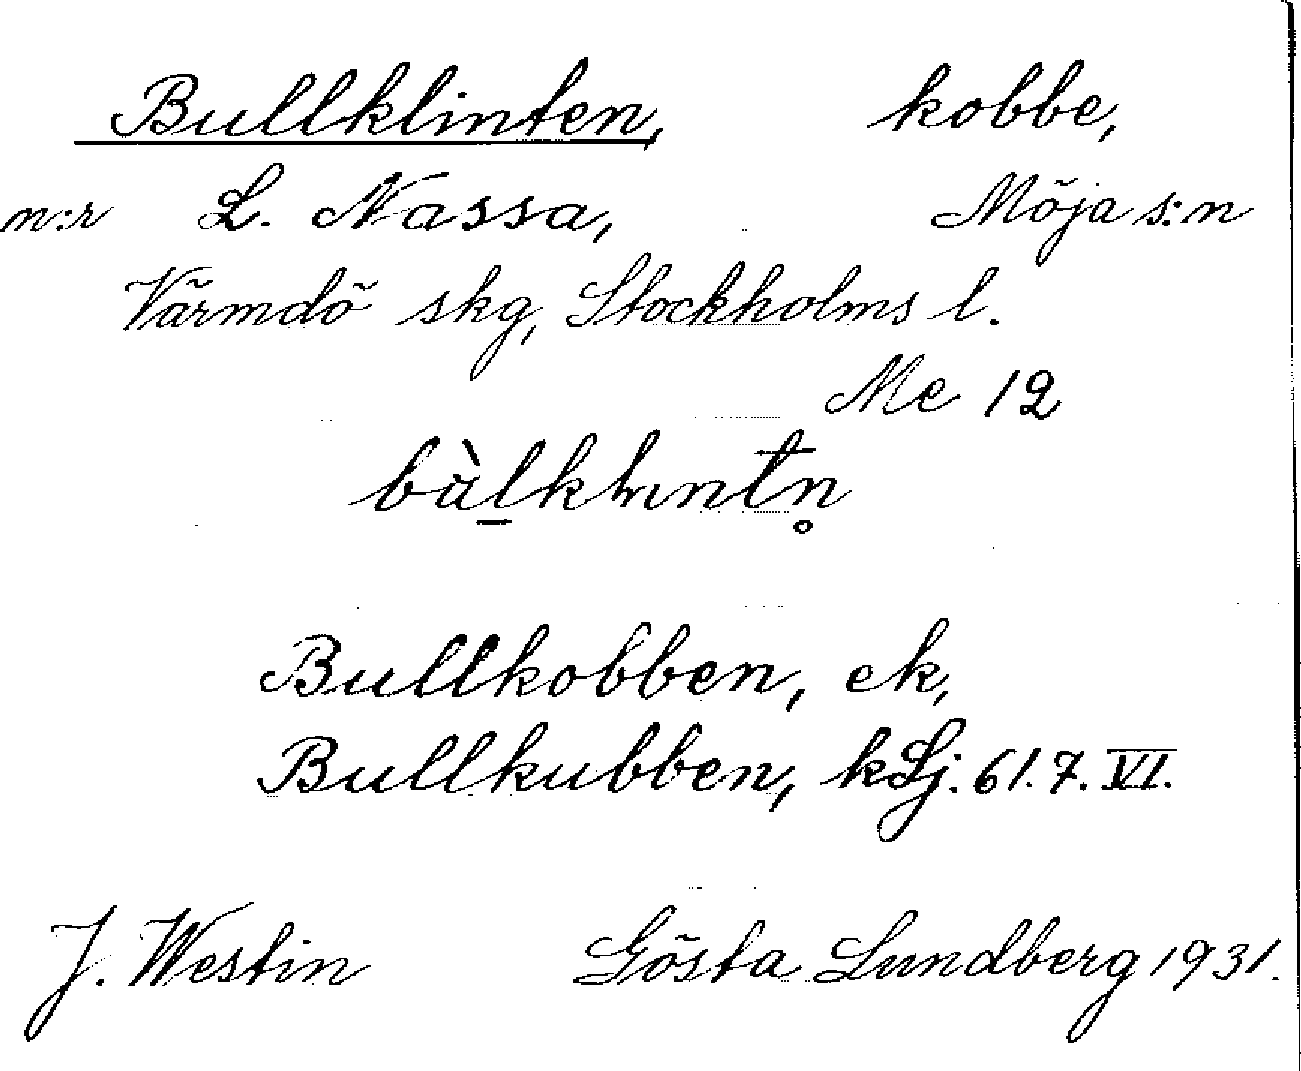 Bullklinten, kobbe,
n:r L. Nassa, Möja s:n
Värmdö skg, Stockholms l.
Me 12
Bullkobben, ek,
Bullkubben, kSj. 61.7.VI.
J. Westin Gösta Lundberg 1931.